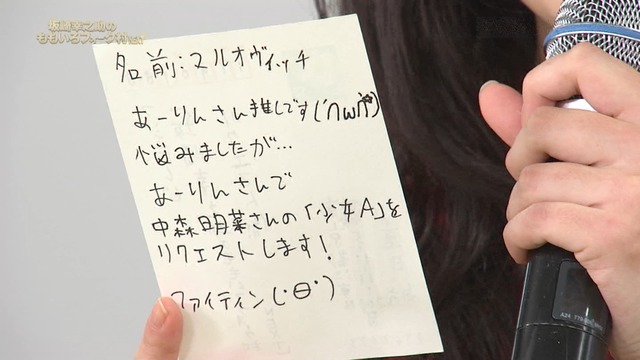 坂崎幸之助の
ももいろフォーク村
名前:マルオヴィッチ
あーりんさん推しです(´∩ω∩`)
悩みましたが…
あーりんさんで
中森明菜さんの「少女A」を
リクエストします!
ファイティン(・θ・)
A24